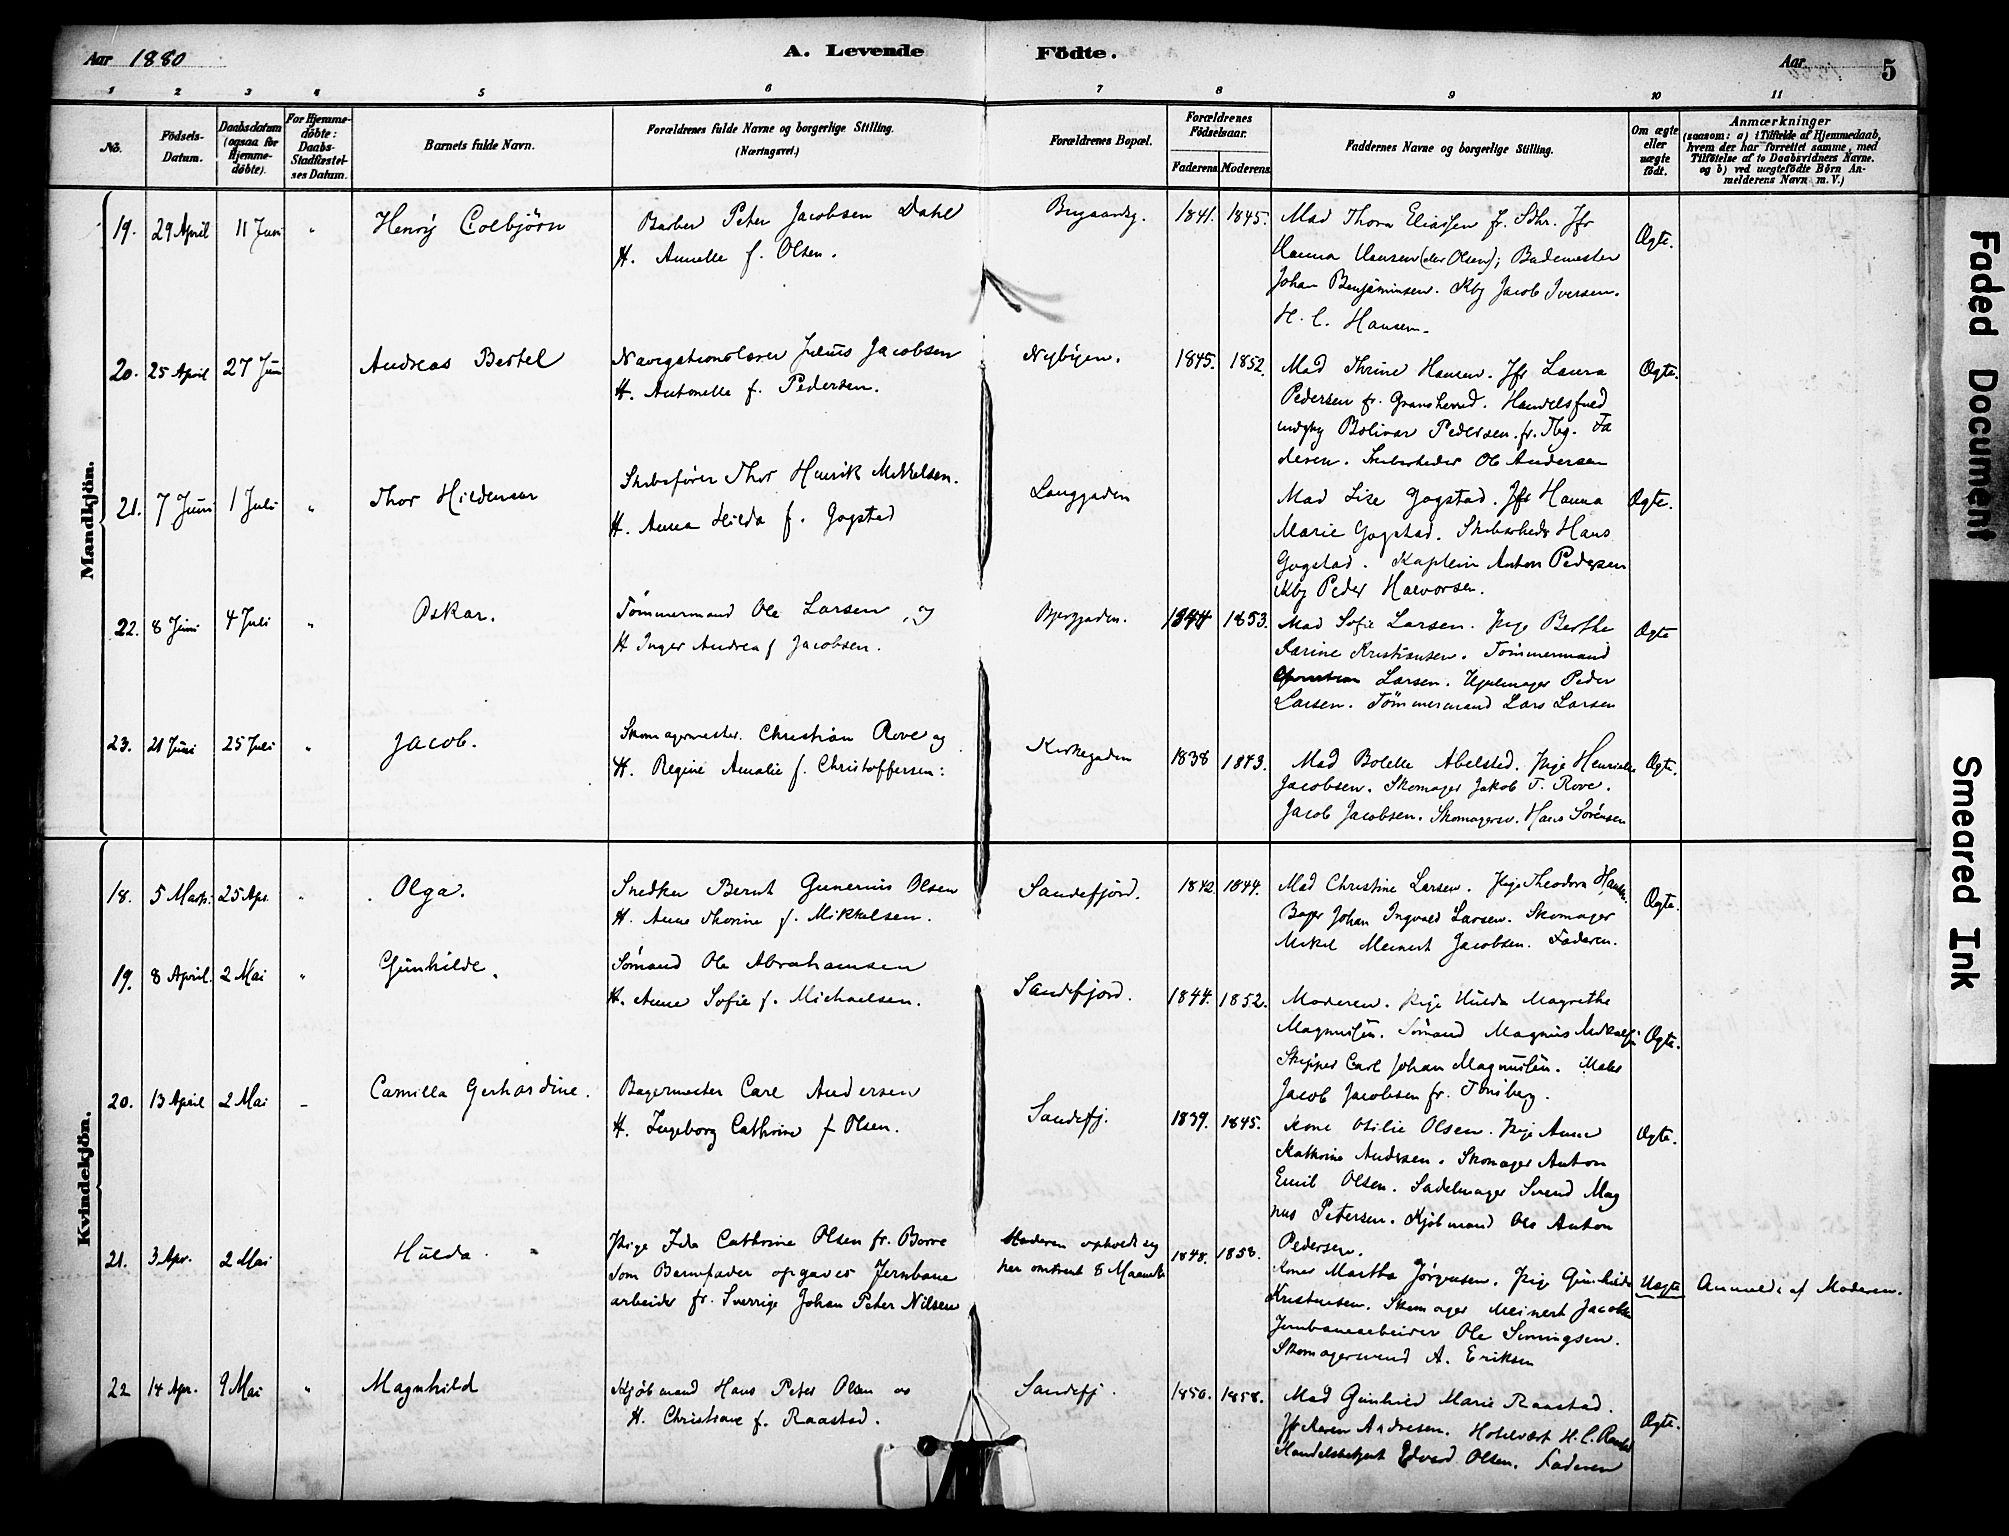 Aar 1880
A. Levende Födte.
Aar
5
1 2 3 4 5 6 7 8 9 10 11
No.
Födsels-Datum.
Daabsdatum (ogsaa for Hjemme-döbte).
For Hjemme-döbte: Daabs-Stadfæstel-ses Datum.
Barnets fulde Navn.
Forældrenes fulde Navne og borgerlige Stilling. (Næringsvei.)
Forældrenes Bopæl.
Forældrenes Fødselsaar.
Faderens. Moderens.
Faddernes Navne og borgerlige Stilling.
Om ægte eller uægte födt.
Anmærkninger
(saasom: a) i Tilfælde af Hjemmedaab,
hvem der har forrettet samme, med
Tilföielse af to Daabsvidners Navne.
og b) ved uægtefödte Börn An-
melderens Navn m. V.)
Mandkjön.
19. 29 April 11 Juni " Henrÿ Colbjörn
Barber Peter Jacobsen Dahl
H. Annette f. Olsen.
1841. 1845.
Mad Thora Eliassen fr. Sdhr. Jfr
Hanna Hansen (eller Olsen); Bademester
Johan Benjaminsen. Kbg Jacob Iversen.
H. C. Hansen.
Ægte.
20. 25 April 27 Juni Andreas Bertel
Navigationslærer Julius Jacobsen
H. Antonette f. Pedersen.
Nybyen.
1845. 1852.
Mad Thrine Hansen. Jfr Laura
Pedersen fr. Gransherred. Handelsfuld
mægtig Bolivar Pedersen fr. Tbg. Fa
deren. Skibsrheder Ole Andersen
Ægte.
21. 7 Juni 1 Juli " Thor Hildemar
Skibsfører Thor Henrik Mikkelsen.
H. Anna Hilda f. Gogstad
Langgaden
Mad Lise Gogstad. Jfr Hanna
Marie Gogstad. Skibsrheder Hans
Gogstad. Kaptein Anton Pedersen
Kbg Peder Halvorsen.
Ægte.
22. 8 Juni 4 Juli " Oskar.
Tömmermand Ole Larsen, og
H Inger Andrea f Jacobsen.
Bjerggaden.
1844 1853.
Mad Sofie Larsen. Pige Berthe
Karine Kristiansen. Tömmermand
Larsen. Hjulmager Peder
Larsen. Tömmermand Lars Larsen
Ægte
23. 21 Juni 25 Juli " Jacob.
Skomagermester Christian Rove og
H. Regine Amalie f. Christoffersen:
Kirkegaden
1838 1843.
Mad Bolette Abelsted. Pige Henriette
Jacobsen. Skomager Jakob T. Rove.
Jacob Jacobsen. Skomagersv. Hans Sörensen
Ægte.
Kvindekjön.
18. 5 Marts. 25 Apr. " Olga.
Snedker Bernt Gunerius Olsen
H. Anne Thorine f. Mikkelsen.
Sandefjord.
1842. 1844.
Mad Christine Larsen. Pige Theodora Hansen.
Bager Johan Ingvald Larsen. Skomager
Mikel Meinert Jacobsen. Faderen.
Ægte.
19. 8 April. 2 Mai " Gunhilde.
Sömand Ole Abrahamsen
H. Anne Sofie f. Michaelsen.
Sandefjord.
1844. 1852.
Moderen. Pige Hulda Magrethe
Magnussen. Sömand Magnus
Skipper Carl Johan Magnussen. Maler
Jacob Jacobsen fr. Tönsberg.
Ægte.
20. 13 April 2 Mai - Camilla Gerhardine.
Bagermester Carl Andersen
H. Ingeborg Cathrine f Olsen.
Sandefj.
1839. 1845.
Kone Otilie Olsen. Pige Anne
Kathrine Andersen. Skomager Anton
Emil Olsen. Sadelmager Svend Mag
nus Petersen. Kjöbmand Ole Anton
Pedersen.
Ægte.
21. 3 Apr. 2 Mai Hulda.
Pige Ida Cathrine Olsen fr. Borre
Som Barnefader opgaves Jernbane
arbeider fr. Sverrige Johan Peter Nilsen
Moderen opholdt sig
her omtrent 8 Maaneder
1848. 1858.
Kone Martha Jörgensen. Pige Gunhilde
Kristensen. Skomager Meinert Jacobsen
Jernbanearbeider Ole
Skomagersvend A. Eriksen
Uægte
Anmeldt af Moderen.
22 14 Apr. 9 Mai " Magnhild
Kjöbmand Hans Peter Olsen og
H. Christiane f. Raastad.
Sandefj.
1850. 1858.
Mad Gunhild Marie Raastad.
Jfr Karen Andresen. Hotelvært H. C. Raastad
Handelsbetjent Edvard Olsen. Faderen
Ægte.
Faded Document
Smeared Ink